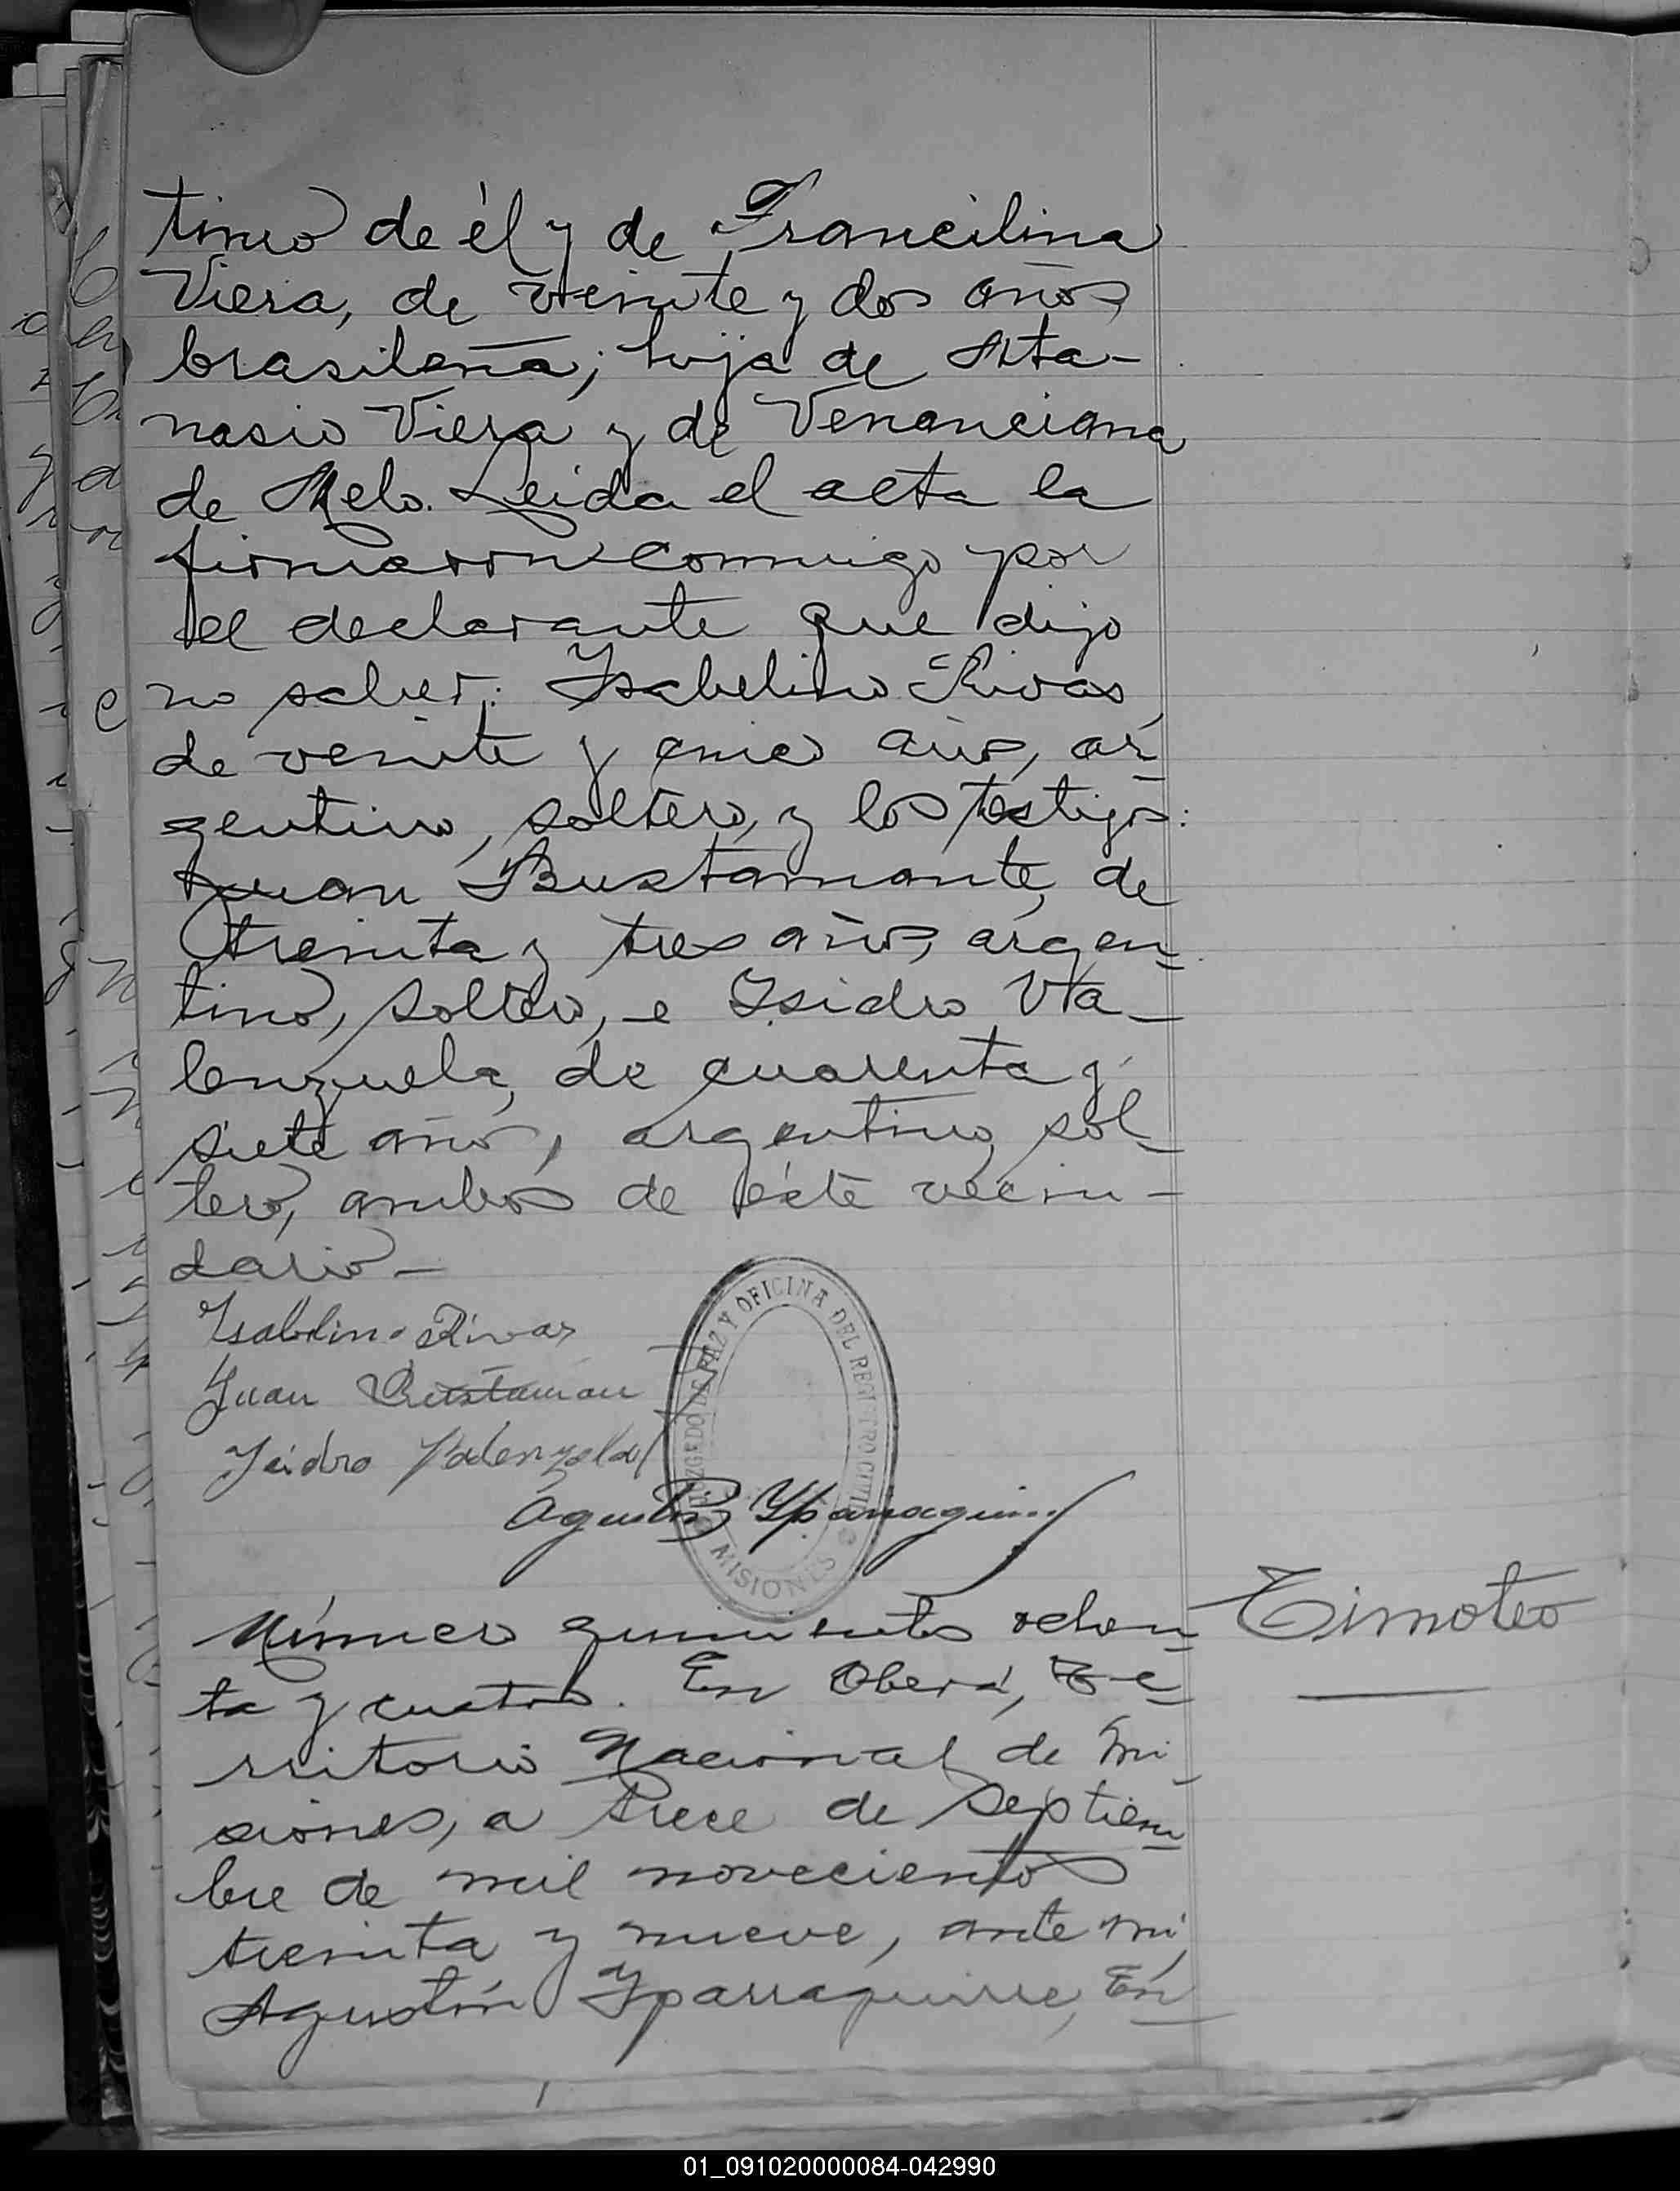 timo de él y de Francilina
Viera, de veinte y dos años
brasileña; hija de Ata-
nasio Viera y de Venanciana
de Melo. Leida el acta la
firmaron conmigo por
el declarante que dijo
no saber: Isabelino Rivas,
de veinte y cinco años, ar-
gentino, soltero, y los testigos:
Juan Bustamante, de
treinta y tres años, argen-
tino, soltero, e Isidro Va-
lenzuela, de cuarenta y
siete años, argentino, sol-
tero, ambos de éste vecin-
dario-
Isabelino Rivas
Juan Bustaman
Isidro Balenzola
JUZGADO DE PAZ Y OFICINA DEL REGISTRO CIVIL
MISIONES
Agustín Yparraguirre
Número quinientos ochen-
ta y cuatro. En Oberá, Te-
rritorio Nacional de Mi-
siones, a trece de Septiem-
bre de mil novecientos
treinta y nueve, ante mí,
Agustín Yparraguirre, En-
Timoteo
01_091020000084-042990